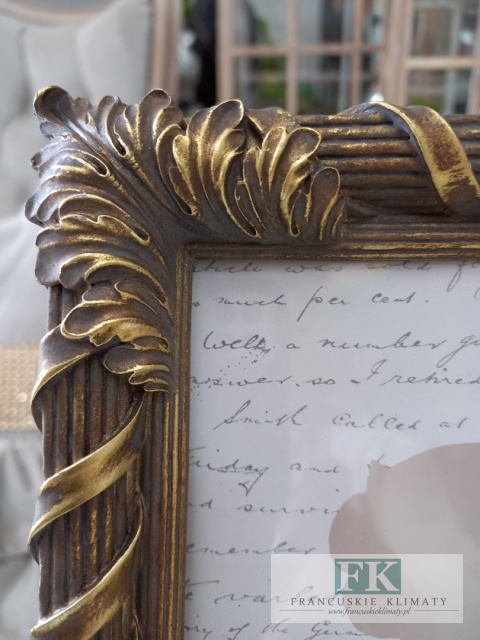 which was sold f
so much per cent.
Well, a number
answer. so I retired
Smith called at
Friday and
d survi
emember
te war
ory of the Germ
FK
FRANCUSKIE KLIMATY
www.francuskieklimaty.pl